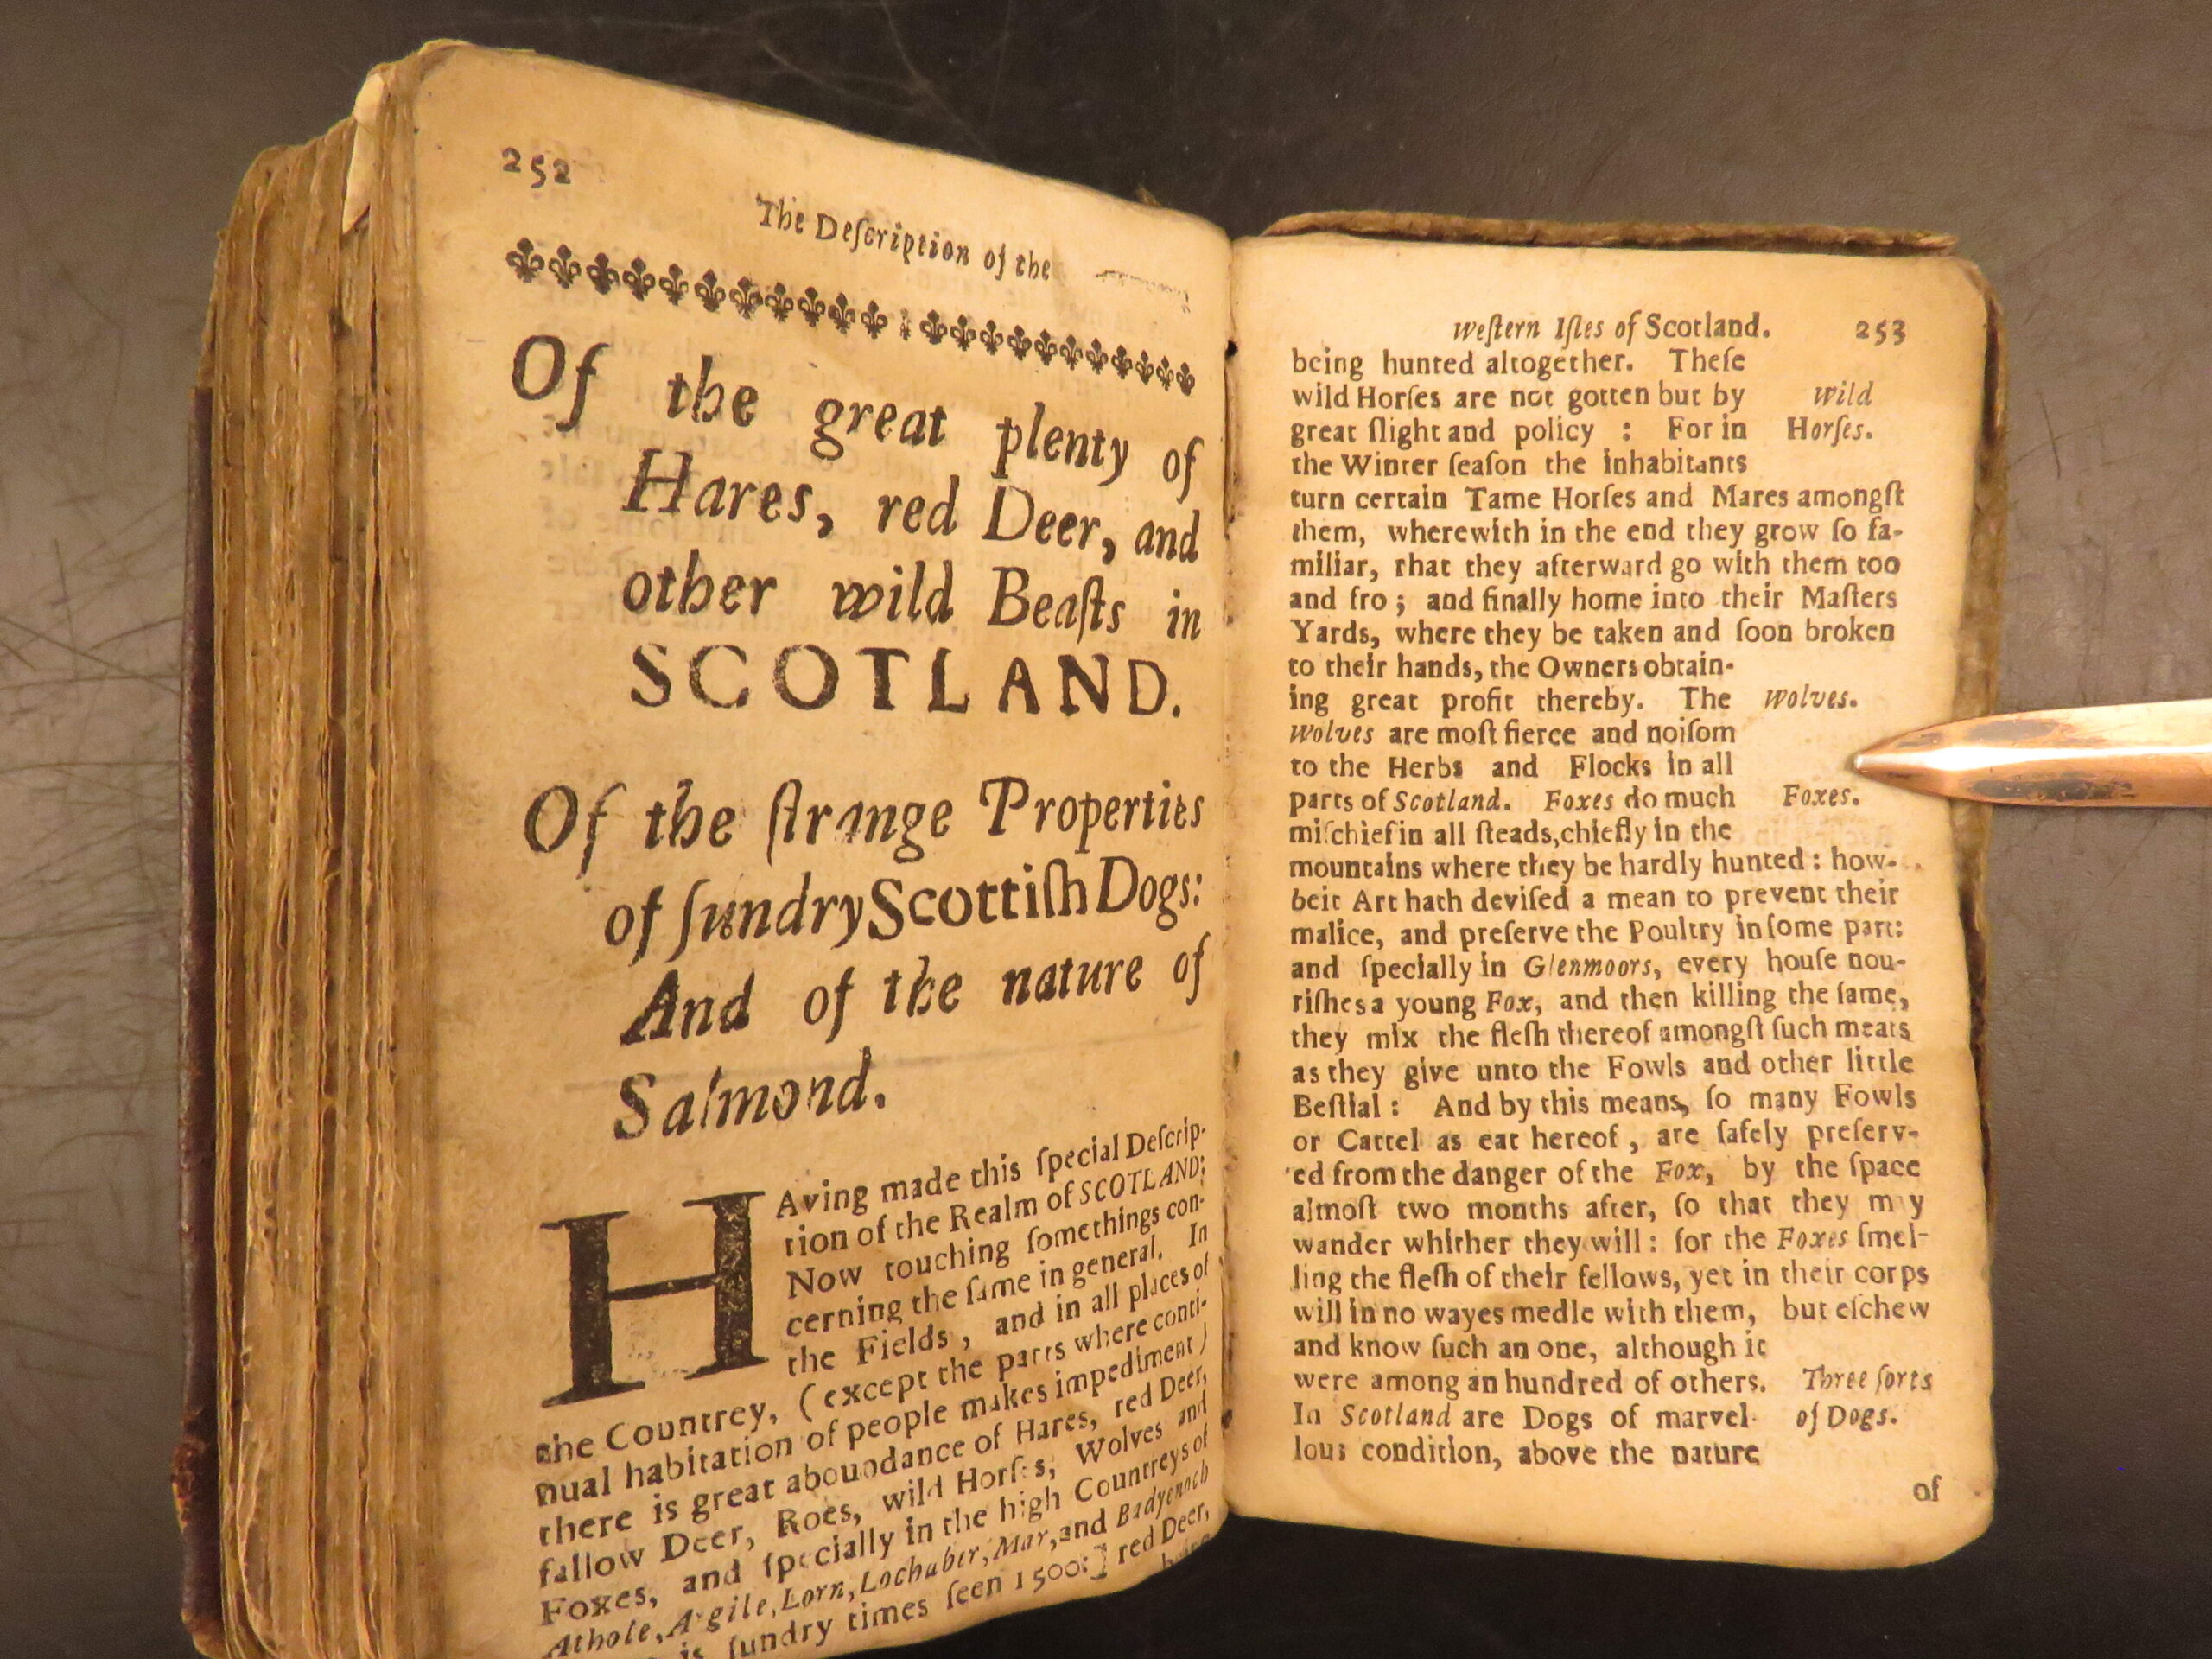 252
The Deſcription of the
Of the great plenty of
Hares, red Deer, and
other wild Beaſts in
SCOTLAND.
Of the ſtrange Properties
of ſundry Scottiſh Dogs:
And of the nature of
Salmond.
HAving made this ſpecial Deſcrip-
tion of the Realm of SCOTLAND:
Now touching ſomethings con-
cerning the ſame in general. In
the Fields, and in all places of
the Countrey, (except the parts where conti-
nual habitation of people makes impediment)
there is great aboundance of Hares, red Deer,
fallow Deer, Roes, wild Horſes, Wolves and
Foxes, and ſpecially in the high Countreys of
Athole, Argile, Lorn, Lochuber, Mar, and Badyenoch
is ſundry times ſeen 1500:] red Deer,
being
weſtern Iſles of Scotland. 253
being hunted altogether. Theſe
wild Horſes are not gotten but by wild
great ſlight and policy : For in Horſes.
the Winter ſeaſon the inhabitants
turn certain Tame Horſes and Mares amongſt
them, wherewith in the end they grow ſo fa-
miliar, that they afterward go with them too
and fro; and finally home into their Maſters
Yards, where they be taken and ſoon broken
to their hands, the Owners obtain-
ing great profit thereby. The wolves.
wolves are moſt fierce and noiſom
to the Herbs and Flocks in all
parts of Scotland. Foxes do much Foxes.
miſchief in all ſteads, chiefly in the
mountains where they be hardly hunted : how-
beit Art hath deviſed a mean to prevent their
malice, and preſerve the Poultry in ſome part:
and ſpecially in Glenmoors, every houſe nou-
riſhes a young Fox, and then killing the ſame,
they mix the fleſh thereof amongſt ſuch meats
as they give unto the Fowls and other little
Beſtial : And by this means, ſo many Fowls
or Cattel as eat hereof, are ſafely preſerv-
ed from the danger of the Fox, by the ſpace
almoſt two months after, ſo that they m y
wander whither they will : for the Foxes ſmel-
ling the fleſh of their fellows, yet in their corps
will in no wayes medle with them, but eſchew
and know ſuch an one, although it
were among an hundred of others. Three ſorts
In Scotland are Dogs of marvel- of Dogs.
lous condition, above the nature
of